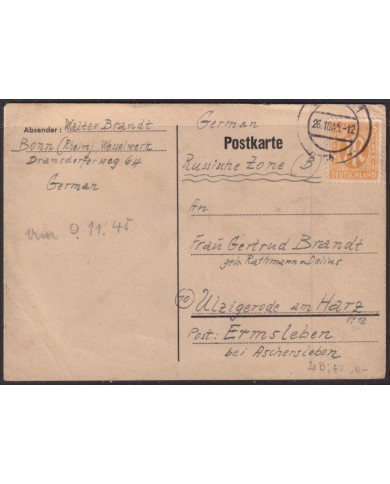 Absender: Walter Brandt
Bonn (Rhein) Wesselwerk
Dransdorferweg 64
German
9.11.45
German
Postkarte
Russische Zone (B)
An
Frau Gertrud Brandt
geb. Rathmann-Delius
(10) Ulzigerode am Harz
Post: Ermsleben
bei Aschersleben
26.10.45.-12
DEUTSCHLAND